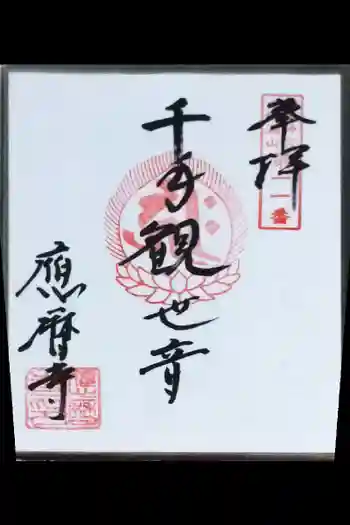 奉拝
千手観世音
應暦寺